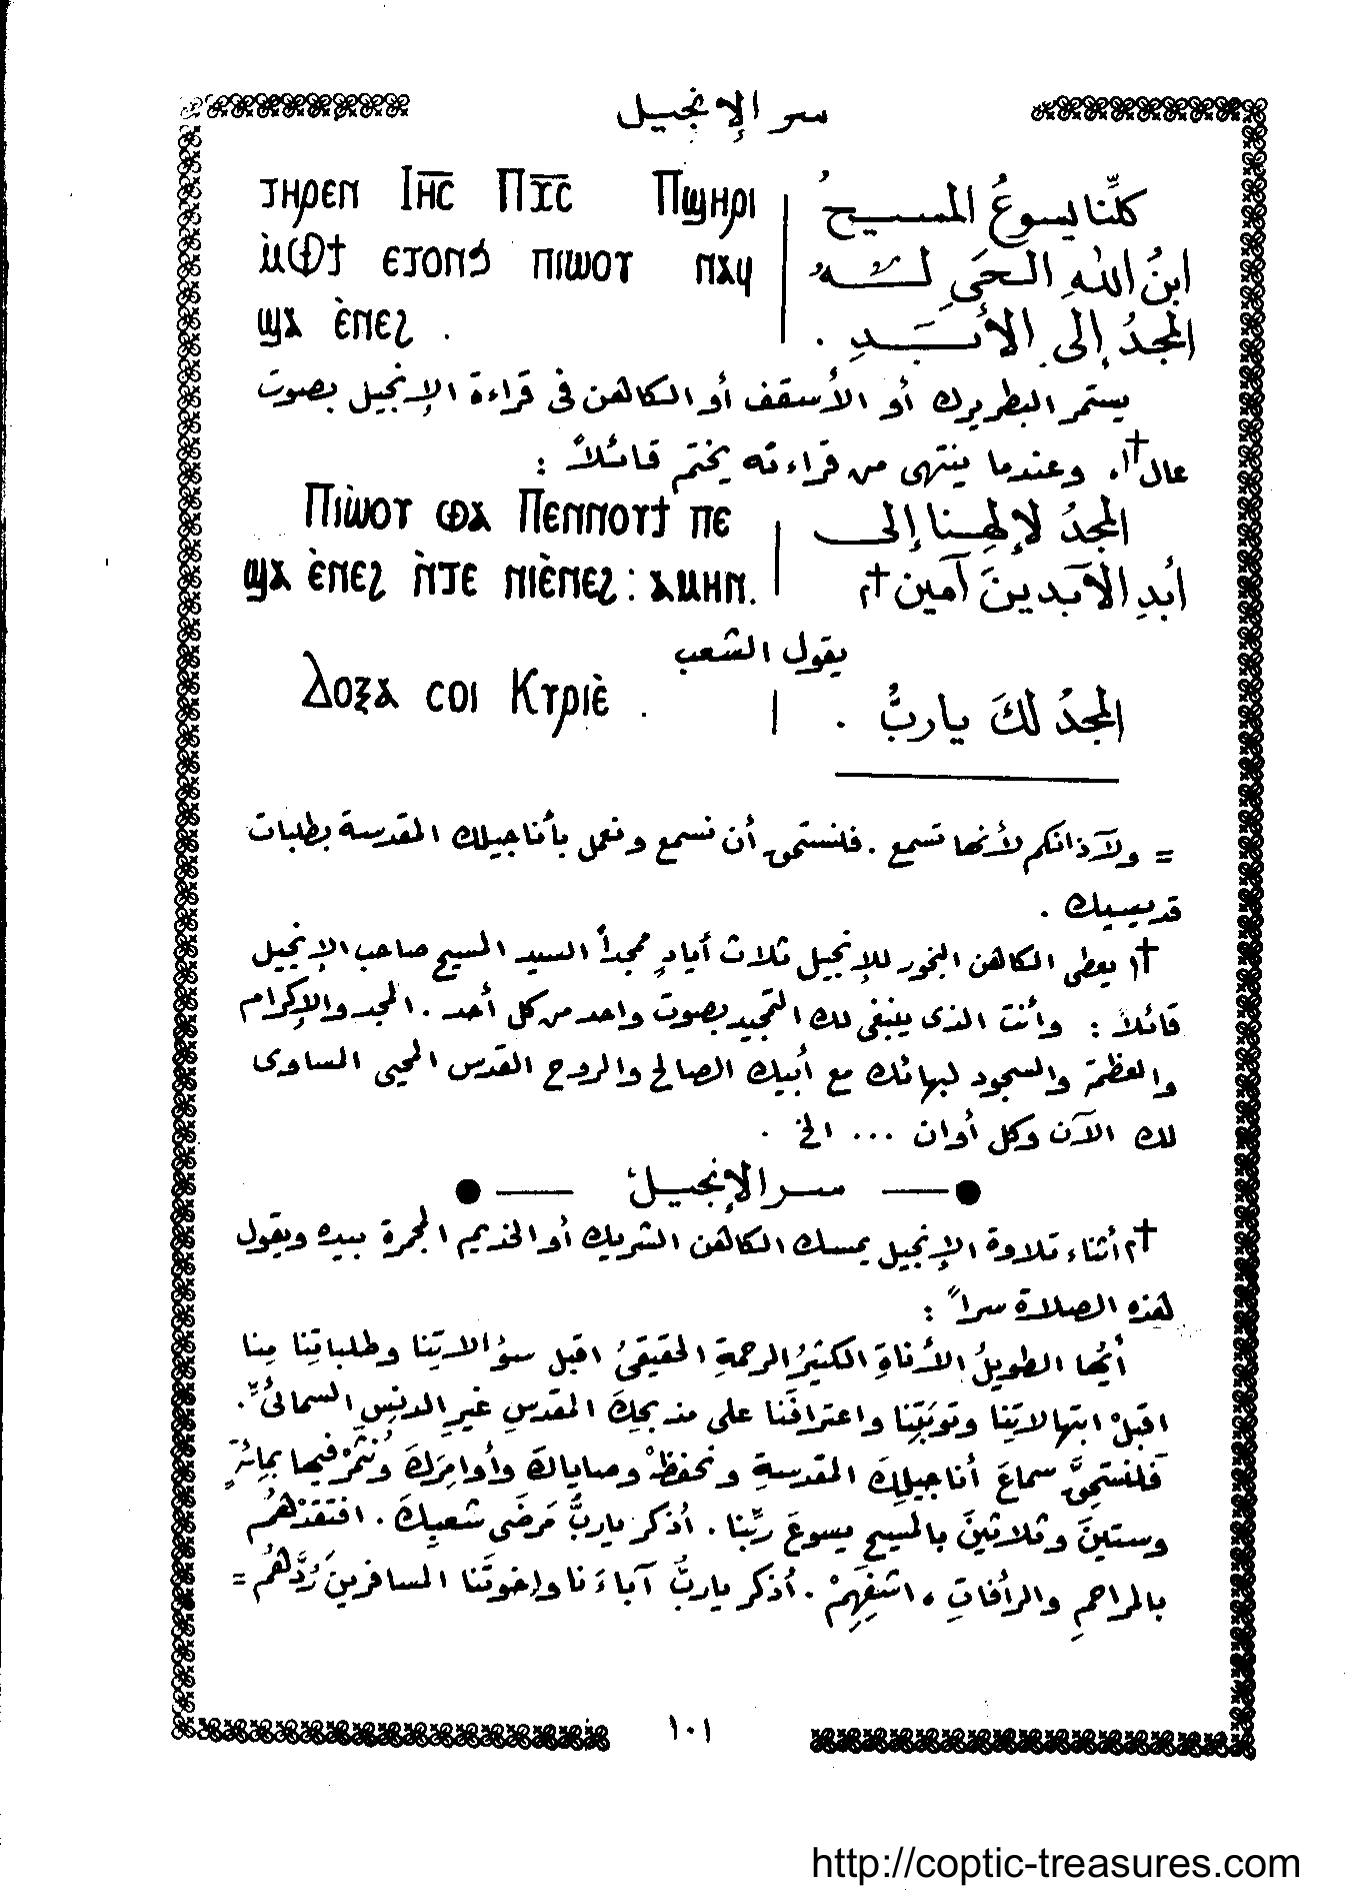 سر الإنجيل
ⲧⲏⲣⲉⲛ Ⲓⲏ̅ⲥ̅ Ⲡⲭ̅ⲥ̅ Ⲡϣⲏⲣⲓ | كلِّنا يسوعُ المسيحُ
ⲙ̀Ⲫϯ ⲉⲧⲟⲛϧ ⲡⲓⲱⲟⲩ ⲛⲁϥ | ابنُ اللهِ الحَيِ لَهُ
ϣⲁ ⲉ̀ⲛⲉϩ . | المجدُ إلى الأبَدِ .
يستمر البطريرك أو الأسقف أو الكاهن فى قراءة الإنجيل بصوت
عال†١. وعندما ينتهى من قراءته يختم قائلاً :
Ⲡⲓⲱ̀ⲟⲩ ⲫⲁ Ⲡⲉⲛⲛⲟⲩϯ ⲡⲉ | المجدُ لإلهِنا إلى
ϣⲁ ⲉ̀ⲛⲉϩ ⲛ̀ⲧⲉ ⲛⲓⲉ̀ⲛⲉϩ : ⲁⲙⲏⲛ. | أبدِ الآبدينَ آمين †٢
يقول الشعب
Ⲇⲟⲝⲁ ⲥⲟⲓ Ⲕⲩⲣⲓⲉ̀ . | المجدُ لكَ ياربُّ .
= ولآذانكم لأنها تسمع . فلنستحق أن نسمع ونعمل بأناجيلك المقدسة بطلبات
قديسيك .
†١ يعطى الكاهن البخور للإنجيل ثلاث أيادٍ ممجداً السيد المسيح صاحب الإنجيل
قائلاً : وأنت الذى ينبغى لك التمجيد بصوت واحد من كل أحد . المجد والإكرام
والعظمة والسجود لبهائك مع أبيك الصالح والروح القدس المحيى المساوى
لك الآن وكل أوان ... الخ .
● — سر الإنجيل — ●
†٢ أثناء تلاوة الإنجيل يمسك الكاهن الشريك أو الخديم المجمرة بيده ويقول
هذه الصلاة سراً :
أيُّها الطويلُ الأناةِ الكثيرُ الرحمةِ الحقيقىُ اقبل سؤالاتِنا وطلباتِنا مِنا
اقبلْ ابتهالاتِنا وتوبَتِنا واعترافَنا على مذبحِكَ المقدسِ غيرِ الدنِسِ السمائىُّ .
فلنستحِقَّ سماعَ أناجيلِكَ المقدسةِ ونحفظْ وصاياكَ وأوامِرَكَ ونُثمْرْ فيها بمِائةٍ
وستينَ وثلاثينَ بالمسيحِ يسوعَ ربِّنا . أذكر ياربُّ مَرضَى شعبِكَ . افتقدْهُم
بالمراحمِ والرأفاتِ ، اشفِهِمْ . أذكر ياربُّ آباءَنا وإخوتَنا المسافرينَ رُدَّهُم =
١٠١
http://coptic-treasures.com